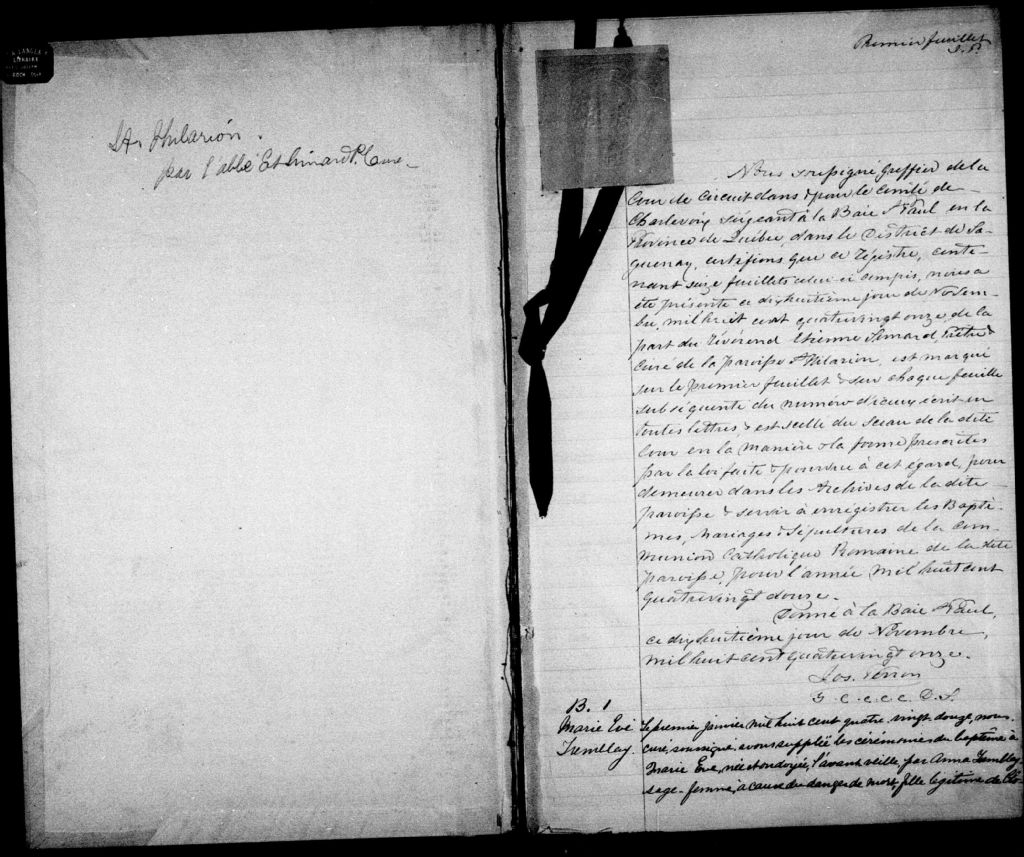 LANGLA
LIBRAIRE
ROCH
St. Hilarion.
par l'abbé Et. Simard Ptre Curé
Premier feuillet
J. P.
Nous soussigné Greffier de la
Cour de Circuit dans & pour le Comité de
Charlevoix siégeant à la Baie St Paul en la
Province de Québec, dans le District de Sa-
guenay, certifions que ce régistre, conte-
nant seize feuillets celui-ci compris, nous a
été présenté ce dixhuitième jour de Novem-
bre, mil huit cent quatrevingt onze, de la
part du Révérend Etienne Simard, Prêtre &
Curé de la paroisse St Hilarion, est marqué
sur le premier feuillet & sur chaque feuille
subséquente du numéro d'iceux écrit en
toutes lettres & est scellé du sceau de la dite
Cour en la manière & la forme prescrites
par la loi faite & pourvue à cet égard, pour
demeurer dans les Archives de la dite
paroisse & servir à enregistrer les Baptê-
mes, Mariages & Sépultures de la Com-
munion Catholique Romaine de la dite
paroisse, pour l'année mil huit cent
quatrevingt douze.
Donné à la Baie St Paul,
ce dixhuitième jour de Novembre,
mil huit cent quatrevingt onze.
Jos. Perron
G. C. C. C. C. D. S.
B. 1
Marie Eve
Tremblay.
Le premier janvier mil huit cent quatre vingt douze, nous
curé, soussigné, avons suppléé les cérémonies du baptême à
Marie Eve, née et ondoyée, l'avant veille, par Anna Tremblay
sage-femme, à cause du danger de mort, fille légitime de